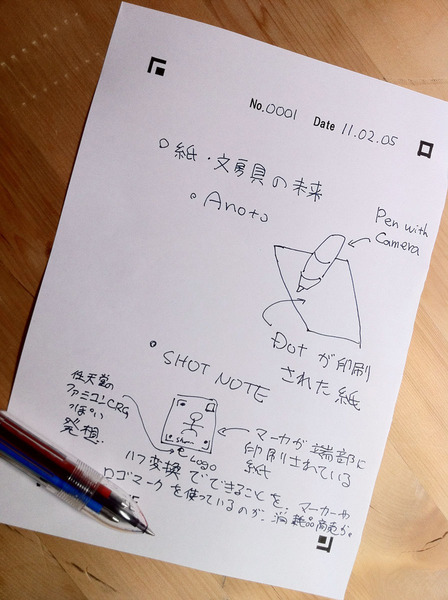 No.0001 Date 11.02.05
紙・文房具の未来
Anoto
Pen with
Camera
Dotが印刷
された紙
SHOT NOTE
任天堂の
ファミコンCRG
っぽい
発想.
Shot
Logo
マーカが端部に
印刷されている
紙
ハフ変換でできることを、マーカーや
ロゴマークを使っているのが、消耗品商売か。